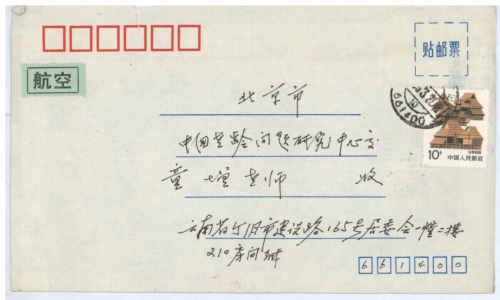 贴邮票
航空
北京市
中国老龄问题研究中心交
童 老师 收
10分
中国人民邮政
661400
云南省个旧市建设路165号居委会一幢二楼
210房间
661400